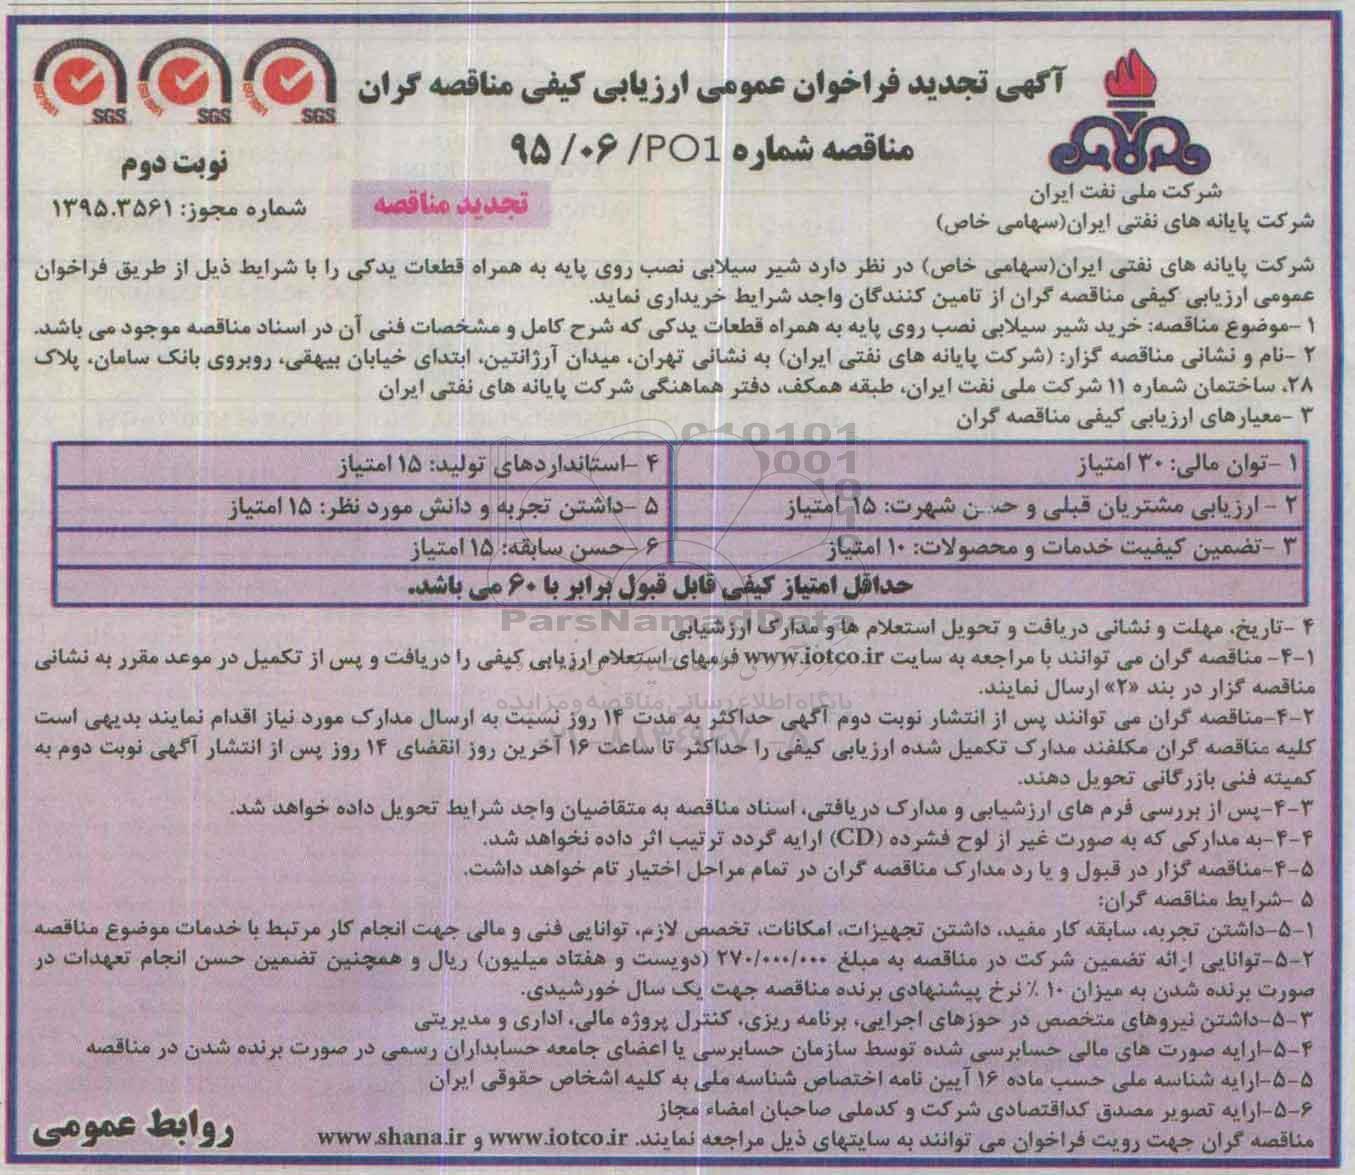 آگهی تجدید فراخوان عمومی ارزیابی کیفی مناقصه گران
مناقصه شماره PO1/ ۰۶/ ۹۵
SGS
SGS
SGS
نوبت دوم
شماره مجوز: ۱۳۹۵.۳۵۶۱
تجدید مناقصه
شرکت ملی نفت ایران
شرکت پایانه های نفتی ایران(سهامی خاص)
شرکت پایانه های نفتی ایران(سهامی خاص) در نظر دارد شیر سیلابی نصب روی پایه به همراه قطعات یدکی را با شرایط ذیل از طریق فراخوان
عمومی ارزیابی کیفی مناقصه گران از تامین کنندگان واجد شرایط خریداری نماید.
۱ -موضوع مناقصه: خرید شیر سیلابی نصب روی پایه به همراه قطعات یدکی که شرح کامل و مشخصات فنی آن در اسناد مناقصه موجود می باشد.
۲ -نام و نشانی مناقصه گزار: (شرکت پایانه های نفتی ایران) به نشانی تهران، میدان آرژانتین، ابتدای خیابان بیهقی، روبروی بانک سامان، پلاک
۲۸، ساختمان شماره ۱۱ شرکت ملی نفت ایران، طبقه همکف، دفتر هماهنگی شرکت پایانه های نفتی ایران
۳ -معیارهای ارزیابی کیفی مناقصه گران
۱ -توان مالی: ۳۰ امتیاز
۴ -استانداردهای تولید: ۱۵ امتیاز
۲ - ارزیابی مشتریان قبلی و حسن شهرت: ۱۵ امتیاز
۵ -داشتن تجربه و دانش مورد نظر: ۱۵ امتیاز
۳ -تضمین کیفیت خدمات و محصولات: ۱۰ امتیاز
۶ -حسن سابقه: ۱۵ امتیاز
حداقل امتیاز کیفی قابل قبول برابر با ۶۰ می باشد.
ParsNamadData
۴ -تاریخ، مهلت و نشانی دریافت و تحویل استعلام ها و مدارک ارزشیابی
۴-۱- مناقصه گران می توانند با مراجعه به سایت www.iotco.ir فرمهای استعلام ارزیابی کیفی را دریافت و پس از تکمیل در موعد مقرر به نشانی
مناقصه گزار در بند «۲» ارسال نمایند.
پایگاه اطلاع رسانی مناقصه و مزایده
۴-۲-مناقصه گران می توانند پس از انتشار نوبت دوم آگهی حداکثر به مدت ۱۴ روز نسبت به ارسال مدارک مورد نیاز اقدام نمایند بدیهی است
کلیه مناقصه گران مکلفند مدارک تکمیل شده ارزیابی کیفی را حداکثر تا ساعت ۱۶ آخرین روز انقضای ۱۴ روز پس از انتشار آگهی نوبت دوم به
کمیته فنی بازرگانی تحویل دهند.
۴-۳-پس از بررسی فرم های ارزشیابی و مدارک دریافتی، اسناد مناقصه به متقاضیان واجد شرایط تحویل داده خواهد شد.
۴-۴-به مدارکی که به صورت غیر از لوح فشرده (CD) ارایه گردد ترتیب اثر داده نخواهد شد.
۴-۵-مناقصه گزار در قبول و یا رد مدارک مناقصه گران در تمام مراحل اختیار تام خواهد داشت.
۵ -شرایط مناقصه گران:
۵-۱-داشتن تجربه، سابقه کار مفید، داشتن تجهیزات، امکانات، تخصص لازم، توانایی فنی و مالی جهت انجام کار مرتبط با خدمات موضوع مناقصه
۵-۲-توانایی ارائه تضمین شرکت در مناقصه به مبلغ ۲۷۰/۰۰۰/۰۰۰ (دویست و هفتاد میلیون) ریال و همچنین تضمین حسن انجام تعهدات در
صورت برنده شدن به میزان ۱۰ ٪ نرخ پیشنهادی برنده مناقصه جهت یک سال خورشیدی.
۵-۳-داشتن نیروهای متخصص در حوزهای اجرایی، برنامه ریزی، کنترل پروژه مالی، اداری و مدیریتی
۵-۴-ارایه صورت های مالی حسابرسی شده توسط سازمان حسابرسی یا اعضای جامعه حسابداران رسمی در صورت برنده شدن در مناقصه
۵-۵-ارایه شناسه ملی حسب ماده ۱۶ آیین نامه اختصاص شناسه ملی به کلیه اشخاص حقوقی ایران
۵-۶-ارایه تصویر مصدق کداقتصادی شرکت و کدملی صاحبان امضاء مجاز
مناقصه گران جهت رویت فراخوان می توانند به سایتهای ذیل مراجعه نمایند. www.iotco.ir و www.shana.ir
روابط عمومی